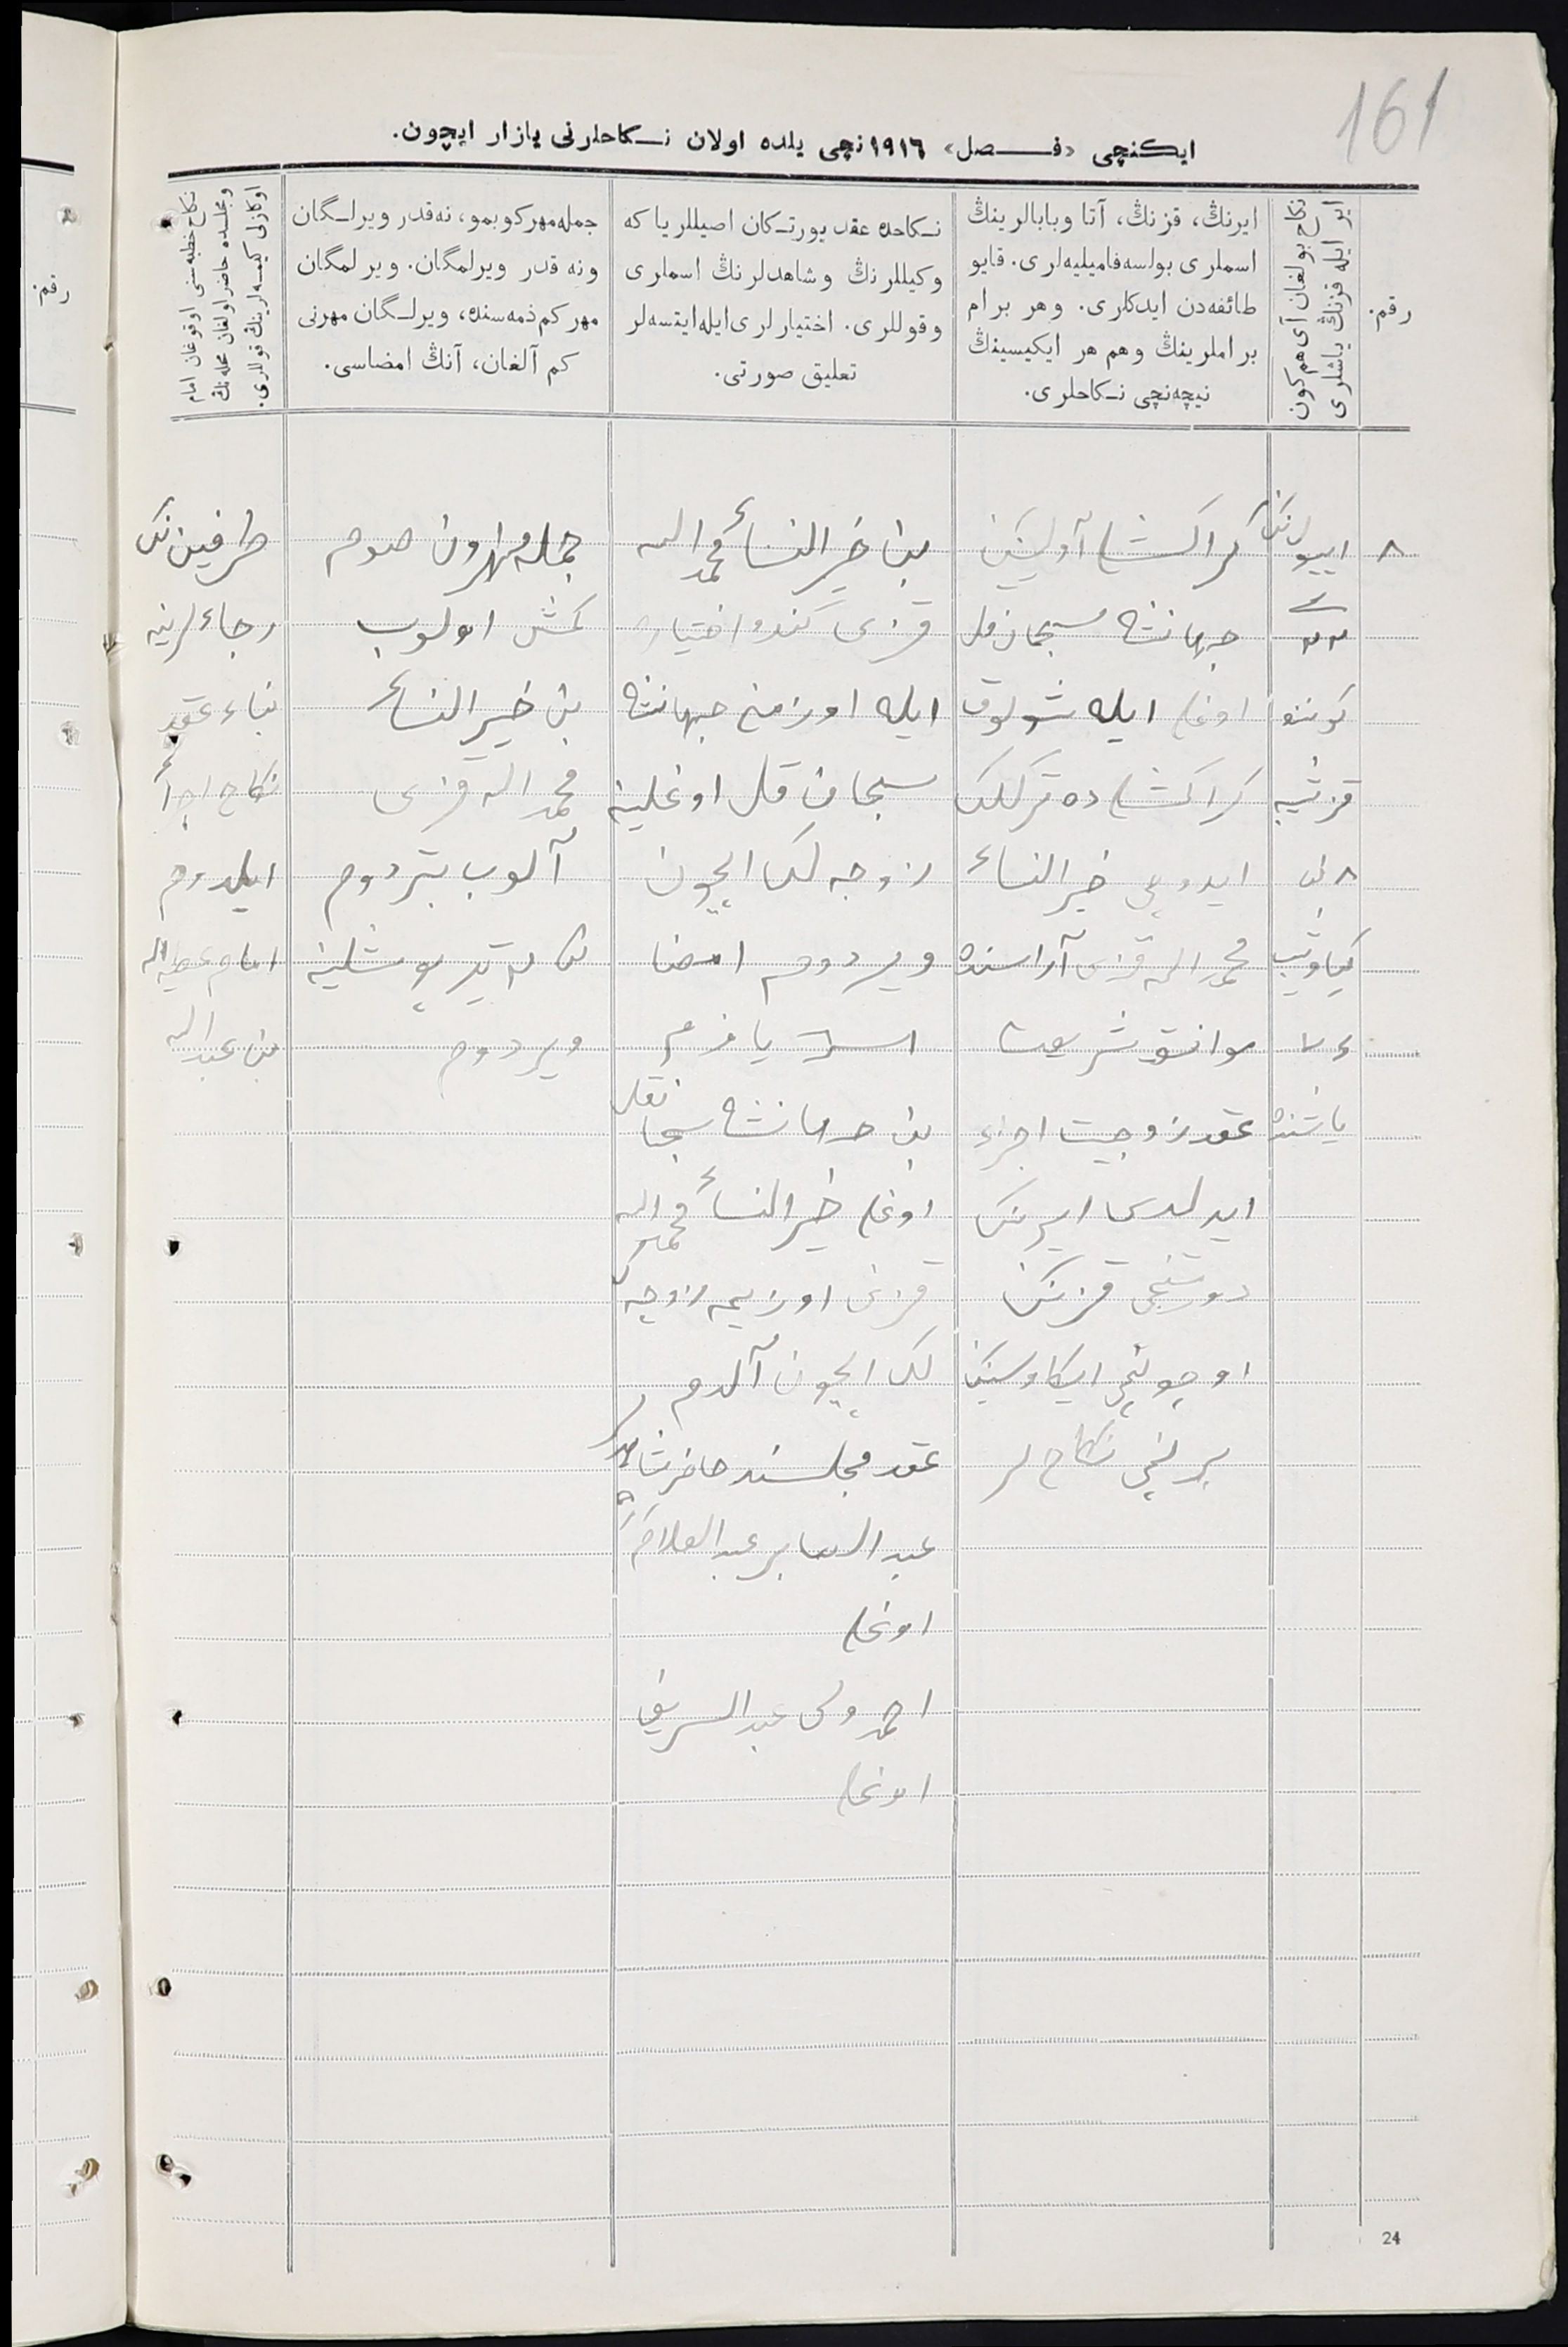 161
ایکنچی «فصل» ١٩١٦ نچی یلده اولان نکاحلرنی یازار ایچون.
رقم.
نکاح بولغان آی هم کون
ایر ایله قزنڭ یاشلری
ایرنڭ، قزنڭ، آتا وبابالرینڭ
اسملری بولسه فامیلیه‌لری. قایو
طائفه‌دن ایدکلری. وهر برام
براملرینڭ وهم هر ایکیسینڭ
نیچه‌نچی نکاحلری.
نکاحده عقد یورتکان اصیللر یا که
وکیللرنڭ وشاهدلرنڭ اسملری
وقوللری. اختیارلری ایله ایتسه‌لر
تعلیق صورتی.
جمله مهر کوبمو، نه قدر ویرلگان
ونه قدر ویرلمگان. ویرلمگان
مهر کم ذمه‌سنده، ویرلگان مهرنی
کم آلغان، آنڭ امضاسی.
نکاح خطبه‌سنی اوقوغان امام
ومجلسده حاضر اولغان محله‌نڭ
اوکازلی کیمسه‌لرینڭ قوللری.
٨
اییولنڭ
٢٢
کوننده
قزنیه
کیاوئیب
٢٤
یاشنده
کراکشا آولینڭ
جهانشه سبحان قل
اوغلی ایله شولوق
کراکشا ده ترککلک
ایدوچی خیر النساء
محمد الله قزی آراسنده
موافق شریعت
عقد زوجیت اجراء
ایدلدی ایرنڭ
دورتنچی قزنڭ
اوچونچی ایکاوسینڭ
برنچی نکاح لر
بن خیر النساء محمد الله
قزی کندو اختیارم
ایله اوزمنی جهانشه
سبحان قل اوغلینه
زوجه لکا ایچون
ویردوم امضا
یازدم
بن جهانشه سبحانقل
اوغلی خیر النساء محمد الله
قزنی اوزیمه زوجه
لک ایچون آلدم
عقد مجلسنده حاضر شاهدلر
عبد الصابر عبد العلام
اوغلی
احمد ولی عبد الشریف
اوغلی
جمله مهر اون صوم
کمش اولوب
بن خیر النساء
محمد الله قزی
آلوب بتردوم
ویردوم
طرفین نڭ
رجاءلرینه
بناء عقد
نکاح اجرا
ایلدوم
امام عطیه الله
بن عبد الله
رقم.
24